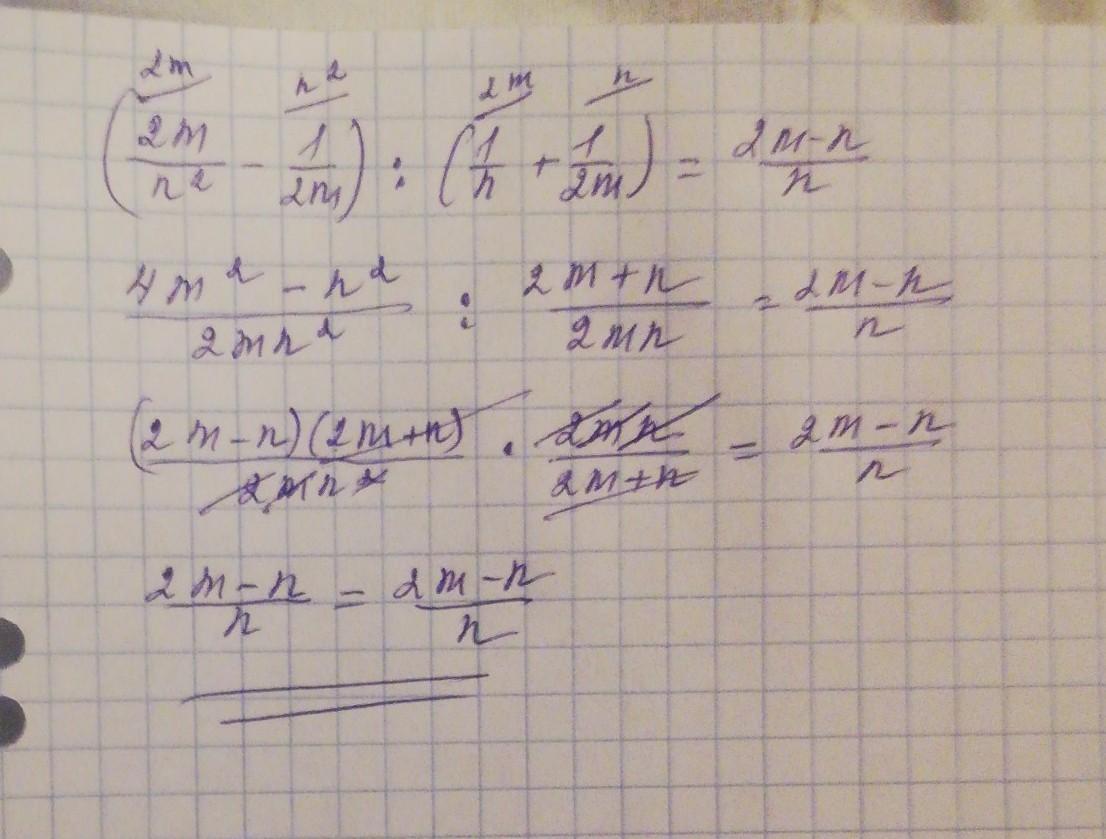 2m n² 2m n
(2m/n² - 1/2m) : (1/n + 1/2m) = 2m-n/n
4m² - n²/2mn² : 2m+n/2mn = 2m-n/n
(2m-n)(2m+n)/2mn² · 2mn/2m+n = 2m-n/n
2m-n/n = 2m-n/n